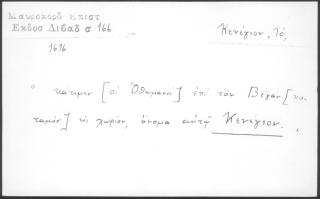 Μαυροκορδ Επιστ
Εκδοσ Λιβαδ σ 166
1696
Κενέγιον, τό,
" κάτιμεν [οἱ Ὀθωμανοὶ] ἐπὶ τὸν Βέγαν [πο-
ταμὸν] εἰς χωρίον, ὄνομα αὐτῷ Κενέγιον.